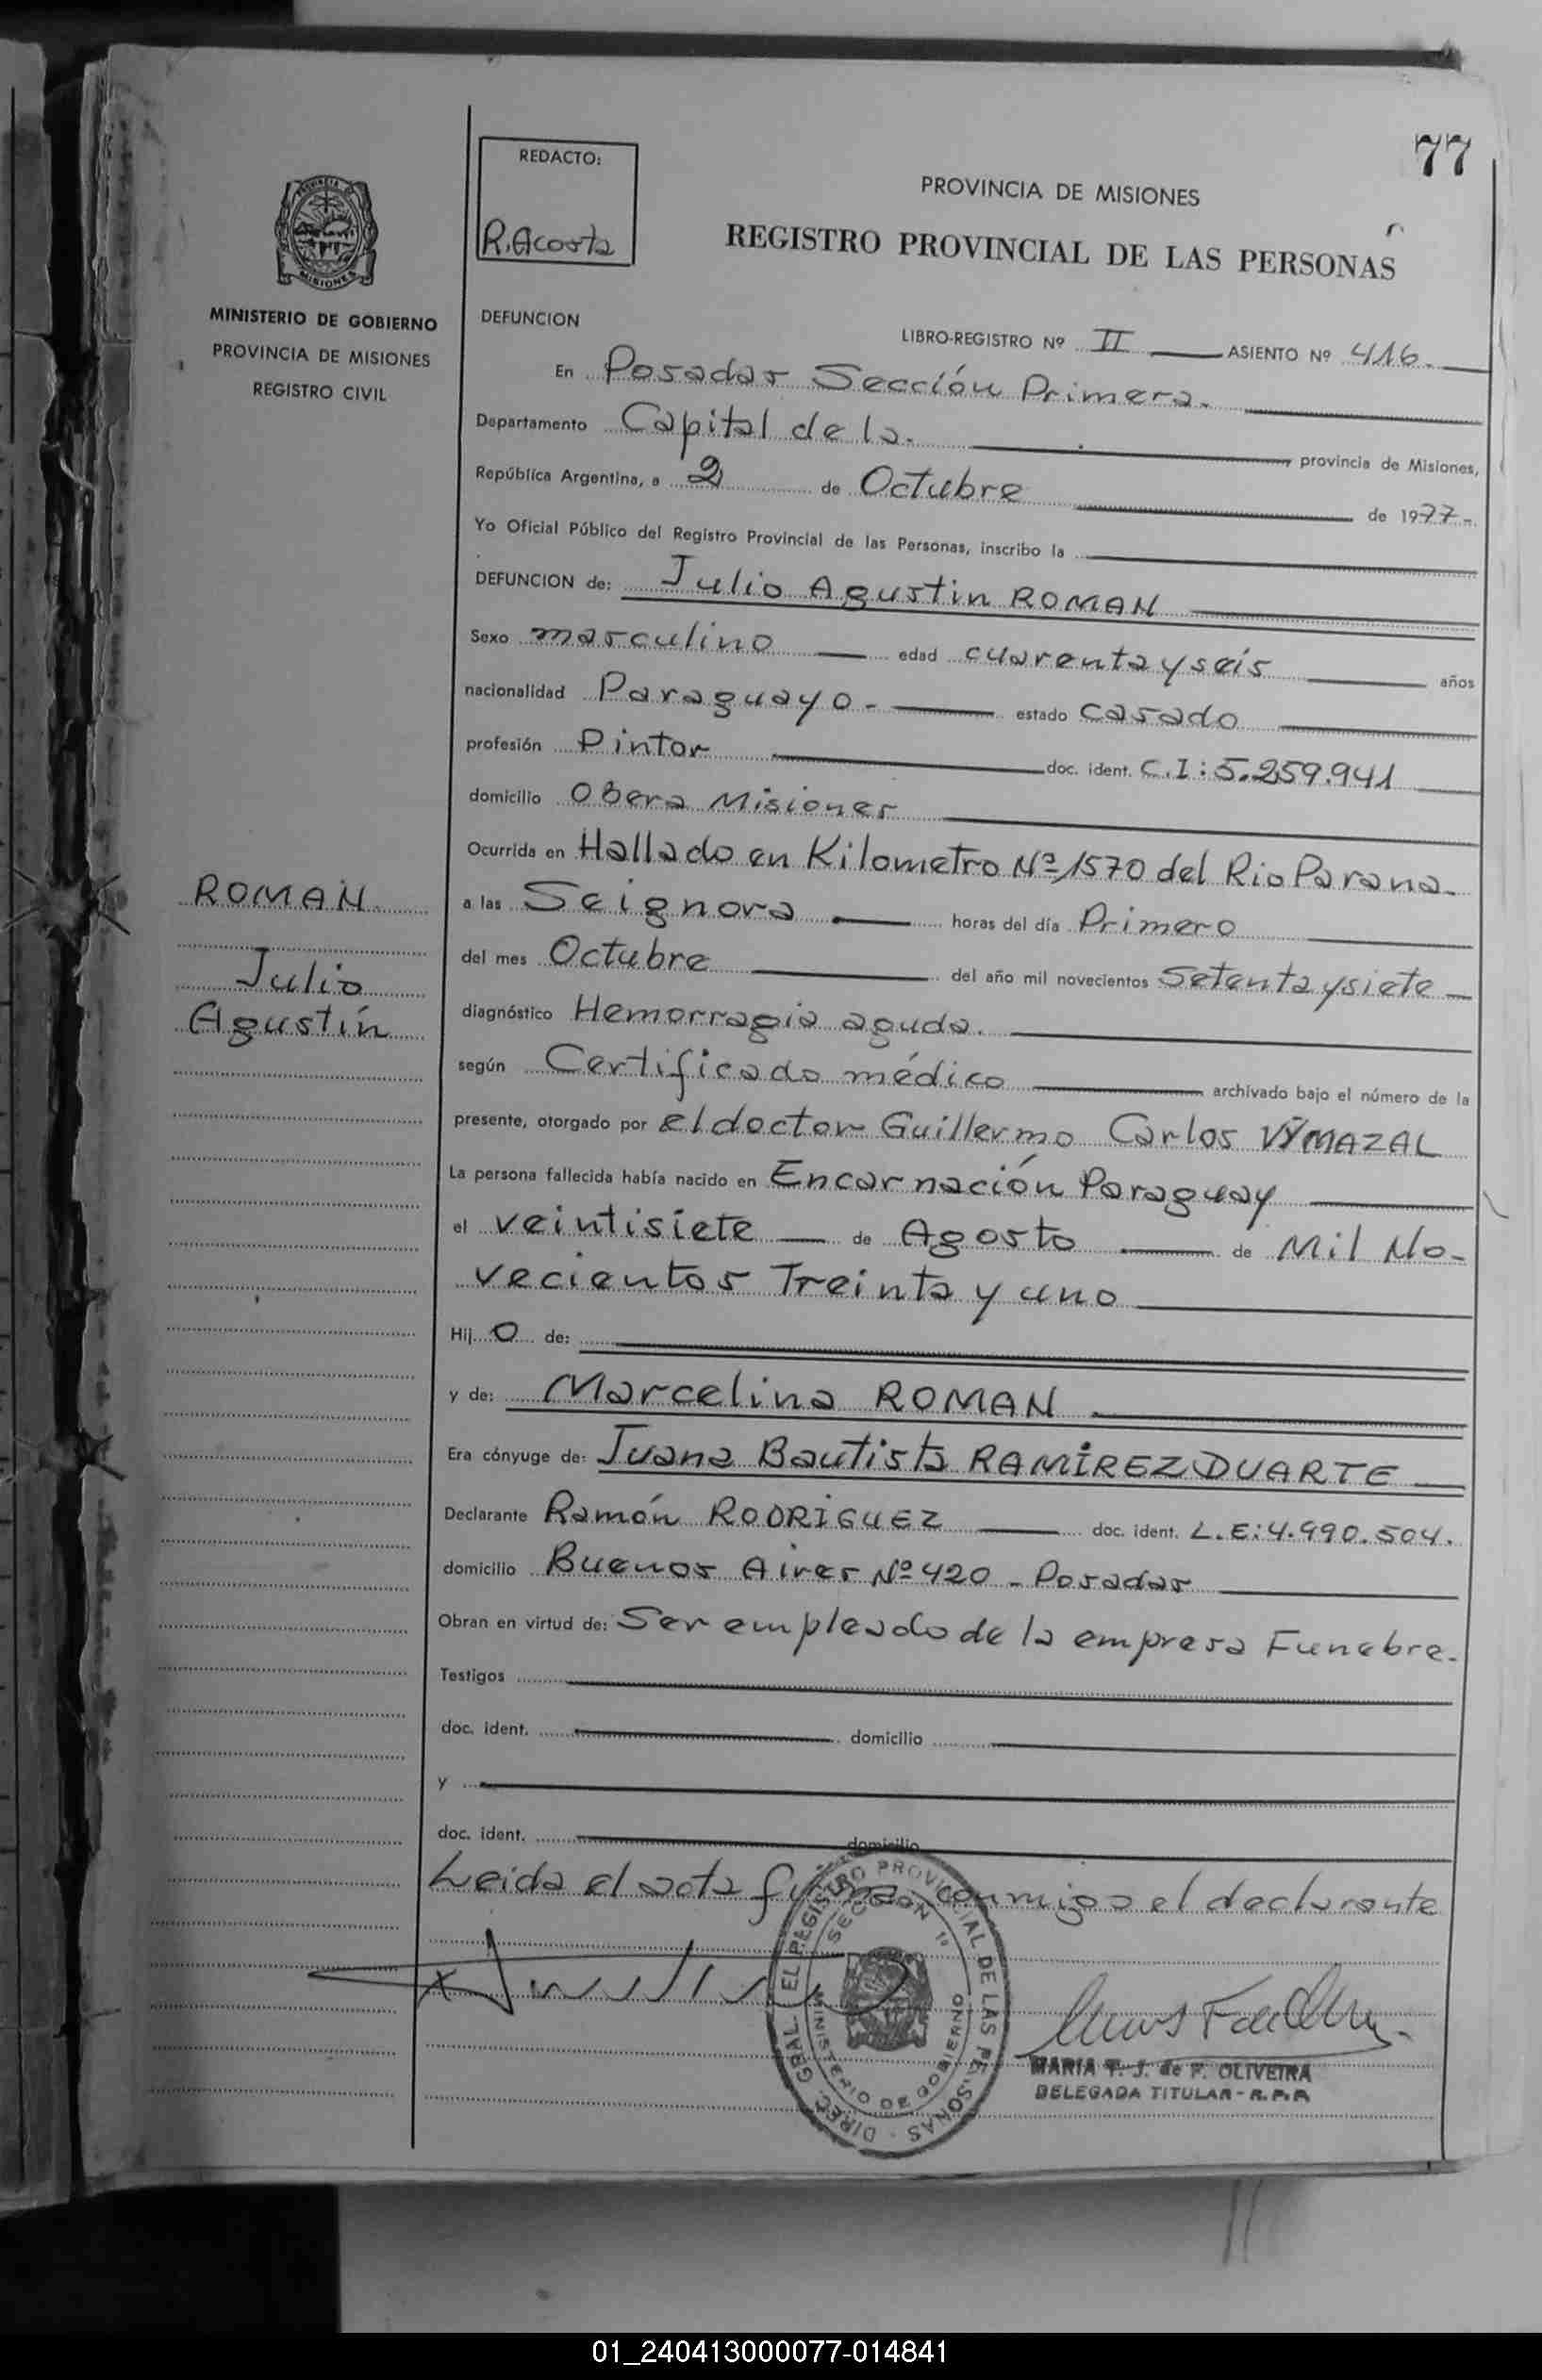 77
REDACTO:
R. Acosta
PROVINCIA DE MISIONES
REGISTRO PROVINCIAL DE LAS PERSONAS
MISIONES
MINISTERIO DE GOBIERNO
PROVINCIA DE MISIONES
REGISTRO CIVIL
ROMAN
Julio
Agustín
DEFUNCION
LIBRO-REGISTRO Nº II ASIENTO Nº 416.
En Posadas Sección Primera.
Departamento Capital de la. provincia de Misiones,
República Argentina, a 2 de Octubre de 1977.
Yo Oficial Público del Registro Provincial de las Personas, inscribo la
DEFUNCION de: Julio Agustin ROMAN
Sexo masculino edad cuarenta y seis años
nacionalidad Paraguayo - estado casado
profesión Pintor doc. ident. C.I: 5.259.941
domicilio Obera Misiones
Ocurrida en Hallado en Kilometro Nº 1570 del Rio Parana.
a las Se ignora horas del día Primero
del mes Octubre del año mil novecientos Setenta y siete
diagnóstico Hemorragia aguda.
según Certificado médico archivado bajo el número de la
presente, otorgado por el doctor Guillermo Carlos VYMAZAL
La persona fallecida había nacido en Encarnación Paraguay
el veintisiete de Agosto de Mil No-
vecientos Treinta y uno
Hij o de:
y de: Marcelina ROMAN
Era cónyuge de: Juana Bautista RAMIREZ DUARTE
Declarante Ramón RODRIGUEZ doc. ident. L.E: 4.990.504.
domicilio Buenos Aires Nº 420 - Posadas
Obran en virtud de: Ser empleado de la empresa Funebre.
Testigos
doc. ident. domicilio
y
doc. ident. domicilio
Leida el acta firma conmigo el declarante
DIREC. GRAL. EL REGISTRO PROVINCIAL DE LAS PERSONAS
SECCION 1º
MINISTERIO DE GOBIERNO
MARIA T. J. de F. OLIVEIRA
DELEGADA TITULAR - R.P.P.
01_240413000077-014841